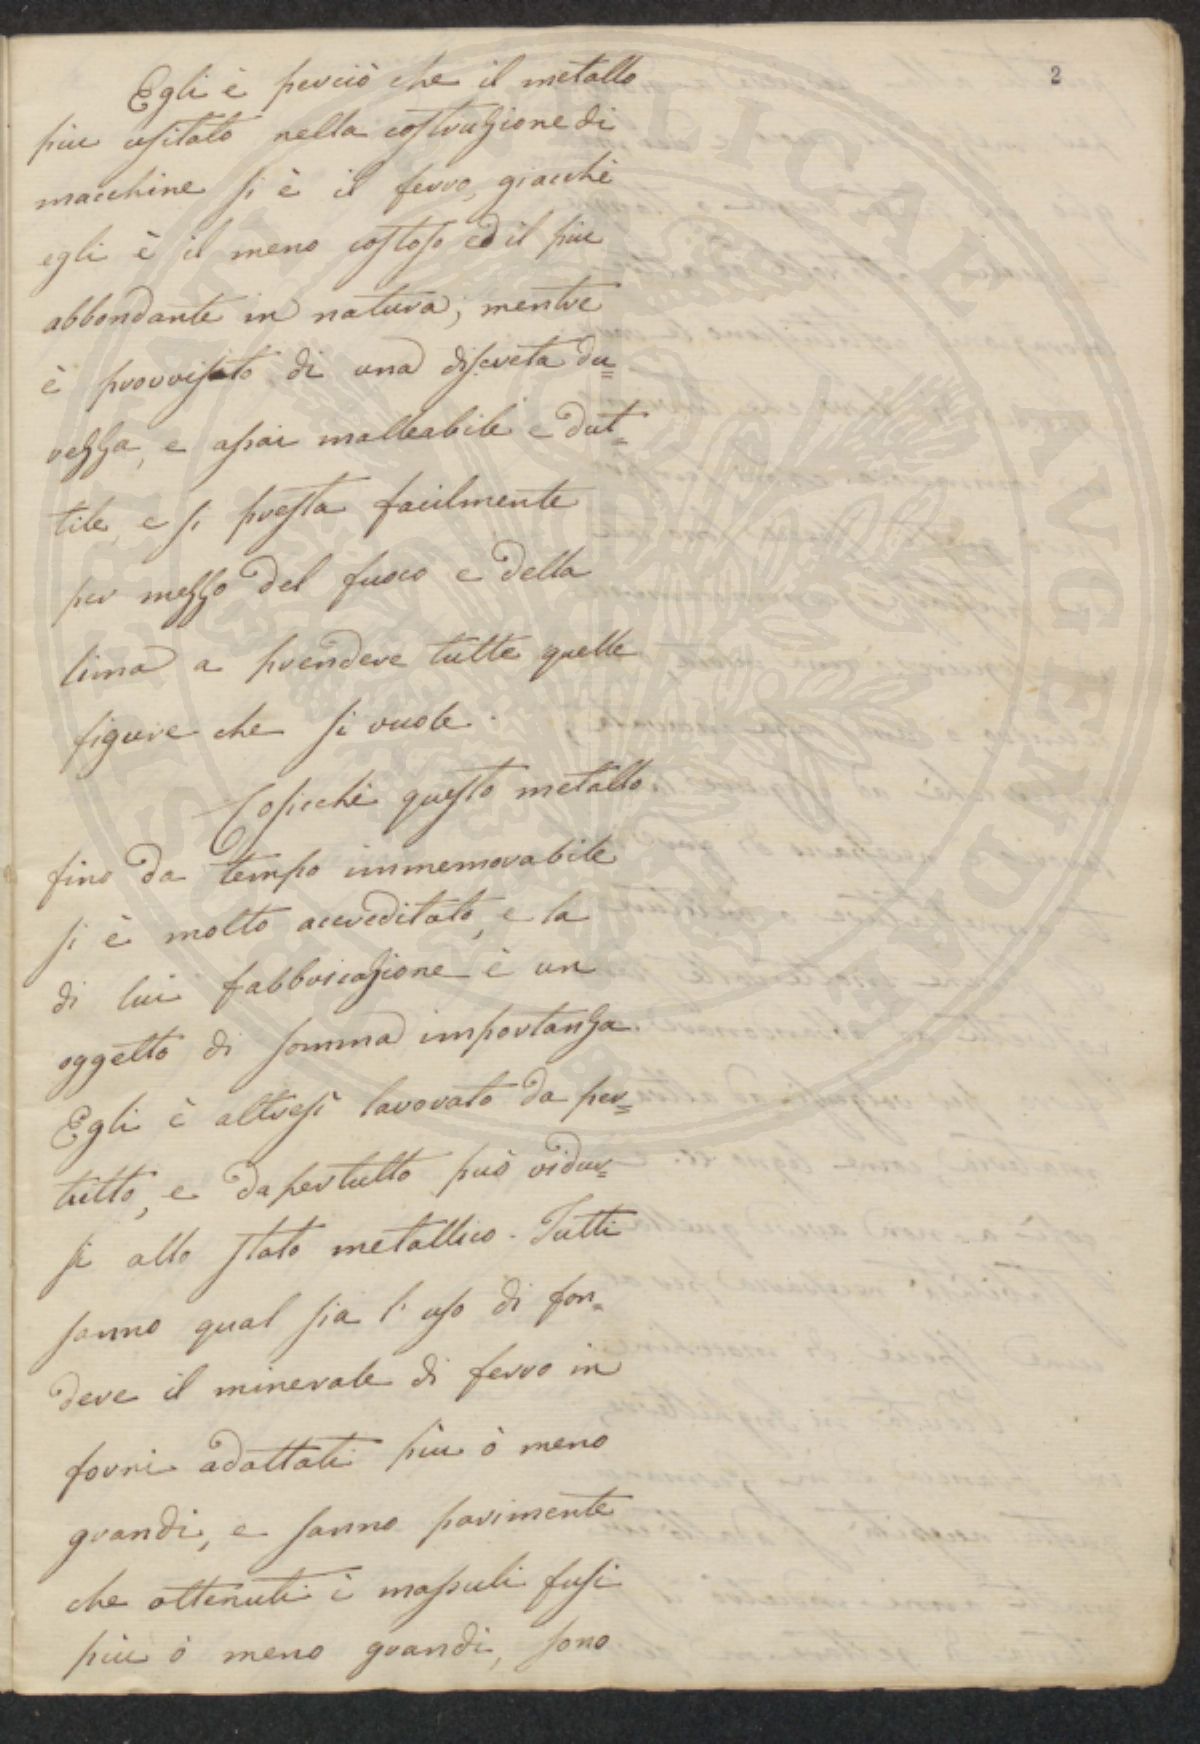 2
Egli è perciò che il metallo
piu usitato nella costruzione di
macchine si è il ferro, giacchè
egli è il meno costoso ed il piu
abbondante in natura; mentre
è provvisto di una discreta du=
rezza, e assai malleabile e dut=
tile, e si presta facilmente
per mezzo del fuoco e della
lima a prendere tutte quelle
figure che si vuole.
Cosicchè questo metallo
fino da tempo immemorabile
si è molto accreditato, e la
di lui fabbricazione è un
oggetto di somma importanza.
Egli è altresì lavorato da per=
tutto, e dapertutto può ridur=
si allo stato metallico. Tutti
sanno qual sia l'uso di fon=
dere il minerale di ferro in
forni adattati piu ò meno
grandi, e sanno parimente
che ottenuti i massuli fusi
piu ò meno grandi, sono